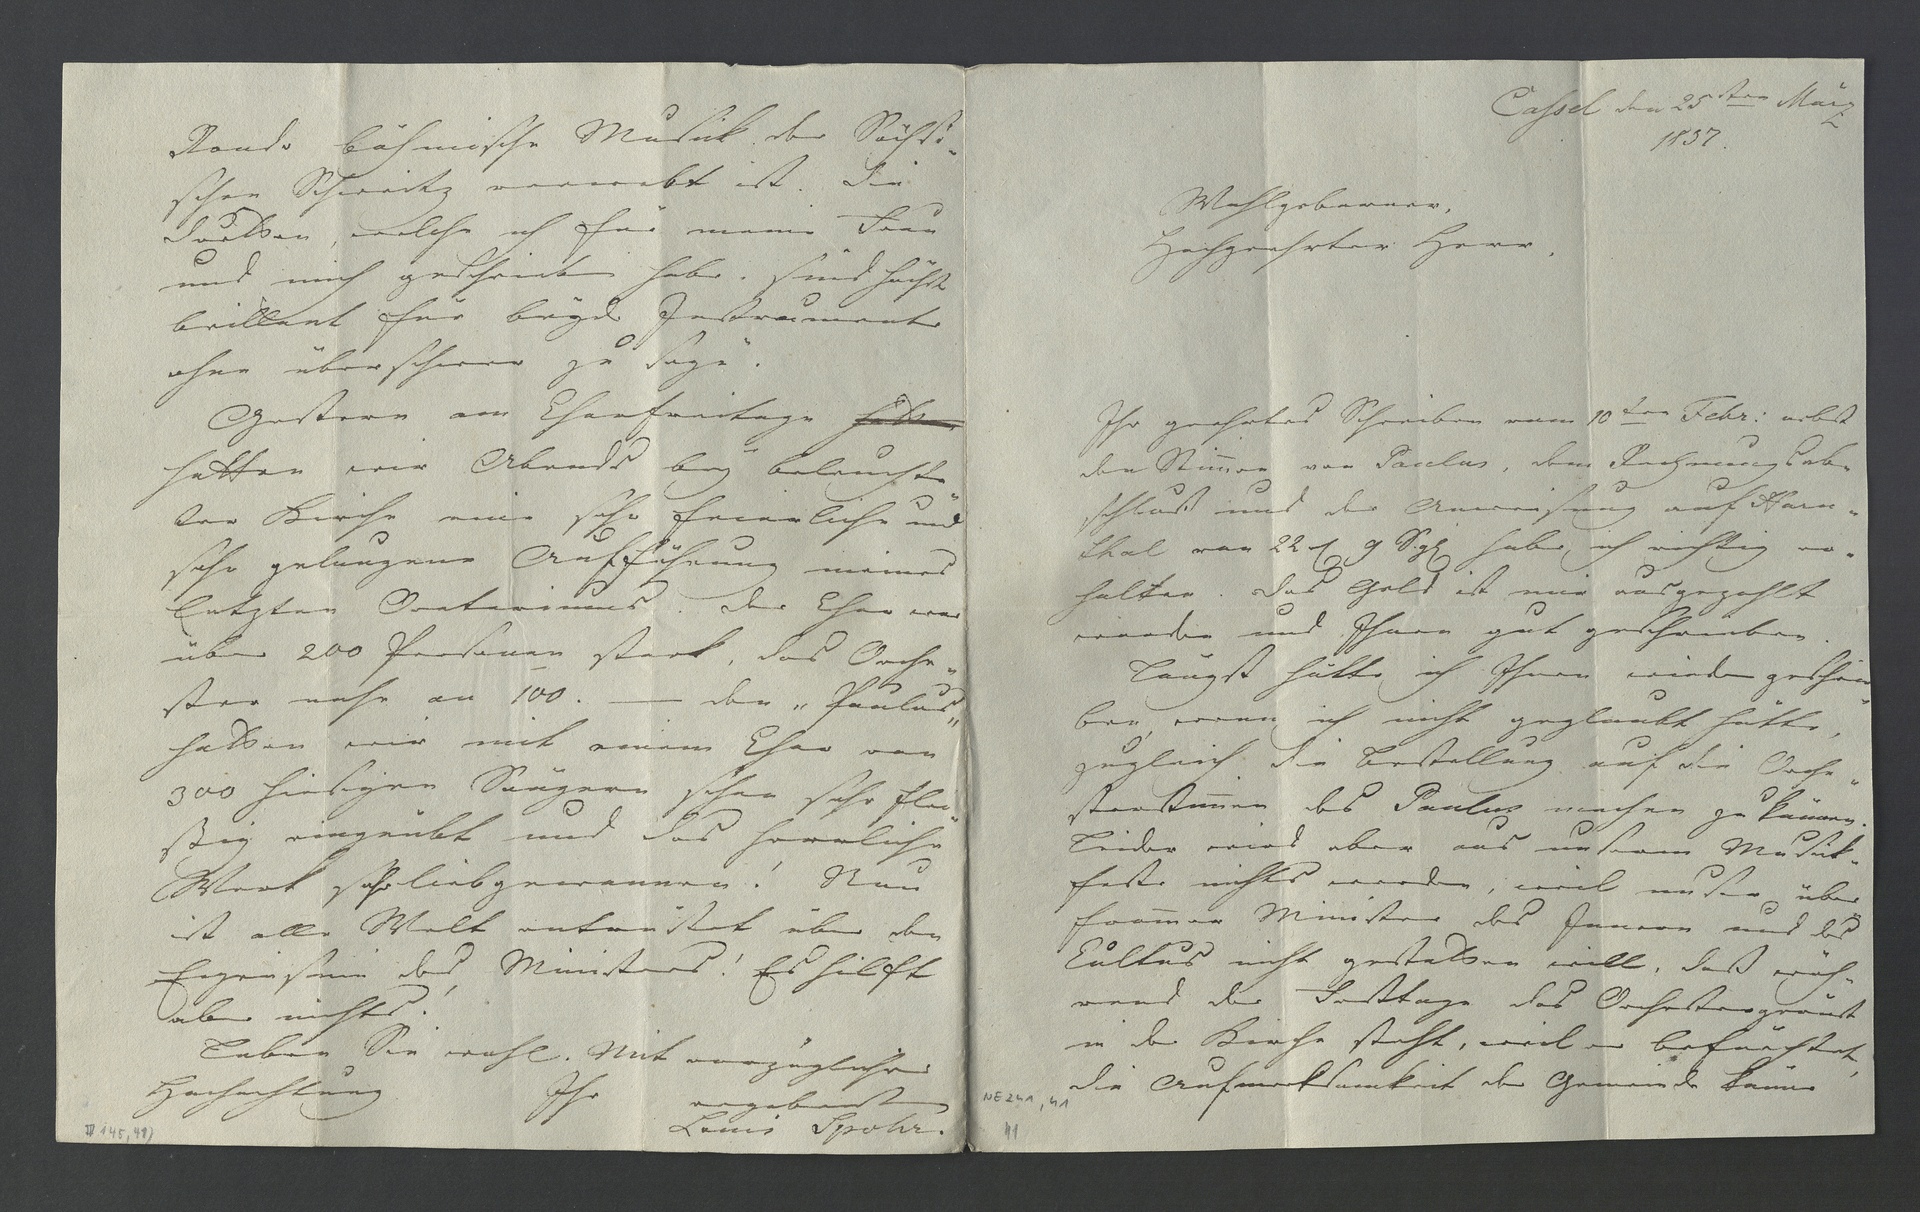 Cassel den 25sten März
1837.
Wohlgeborner,
Hochgeehrter Herr,
Ihr geehrtes Schreiben vom 10ten Febr: nebst
den Stimmen von Paulus, dem Rechnungsab-
schluß und der Anweisung auf Harn-
thal von 22 rf 9 Sgl habe ich richtig er-
halten. Das Geld ist mir ausgezahlt
worden und Ihnen gut geschrieben.
Längst hätte ich Ihnen wieder geschrie-
ben, wenn ich nicht geglaubt hätte,
zugleich die Bestellung auf die Orche-
sterstimmen des Paulus machen zu können.
Leider wird aber aus unserm Musik-
feste nichts werden, weil unser über-
frommer Minister des Innern und des
Cultus nicht gestatten will, daß wäh-
rend der Festtage das Orchestergerüst
in der Kirche steht, weil er befürchtet,
die Aufmerksamkeit der Gemeinde könne
NE 241, 41
41
Rondo böhmische Musik der Sächsi-
schen Schweitz verwebt ist. Die
Duetten, welche ich für meine Frau
und mich geschrieben habe, sind höchst
brillant für beyde Instrumente
ohne überschwer zu seyn.
Gestern am Charfreitage hatten
hatten wir Abends bey beleuchte-
ter Kirche eine sehr feierliche und
sehr gelungene Aufführung meines
letzten Oratoriums. Der Chor war
über 200 Personen stark, das Orche-
ster nahe an 100. — Den „Paulus"
hatten wir mit einem Chor von
300 hiesigen Sängern schon sehr flei-
ßig eingeübt und das herrliche
Werk sehr liebgewonnen! Nun
ist alle Welt entrüstet über den
des Ministers! Es hilft
aber nichts!
Leben Sie wohl. Mit vorzüglicher
Hochachtung Ihr ergebenster
Louis Spohr.
IV 145, 41)